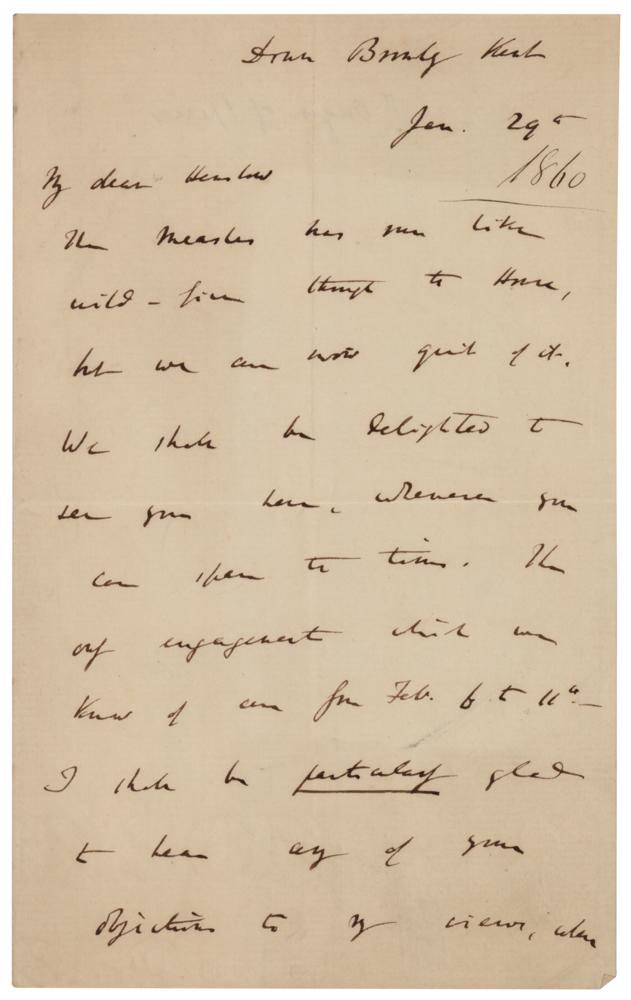 Down Bromley Kent
Jan. 29th
1860
My dear Henslow
The measles has run like
wild-fire through the House,
but we are now quit of it.
We shall be delighted to
see you here, whenever you
can spare the time. The
only engagement which we
know of are from Feb. 6 to 11th—
I shall be particularly glad
to hear any of your
objections to my views, when